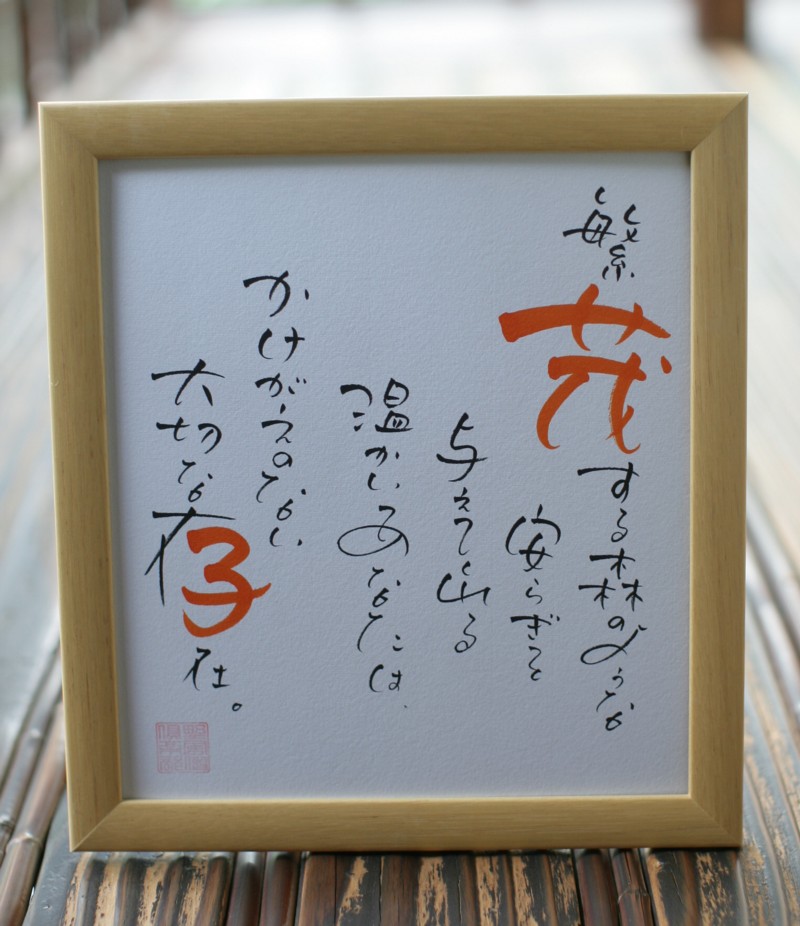 繁茂する森のような
安らぎを
与えてくれる
温かいあなたは、
かけがえのない
大切な存在。